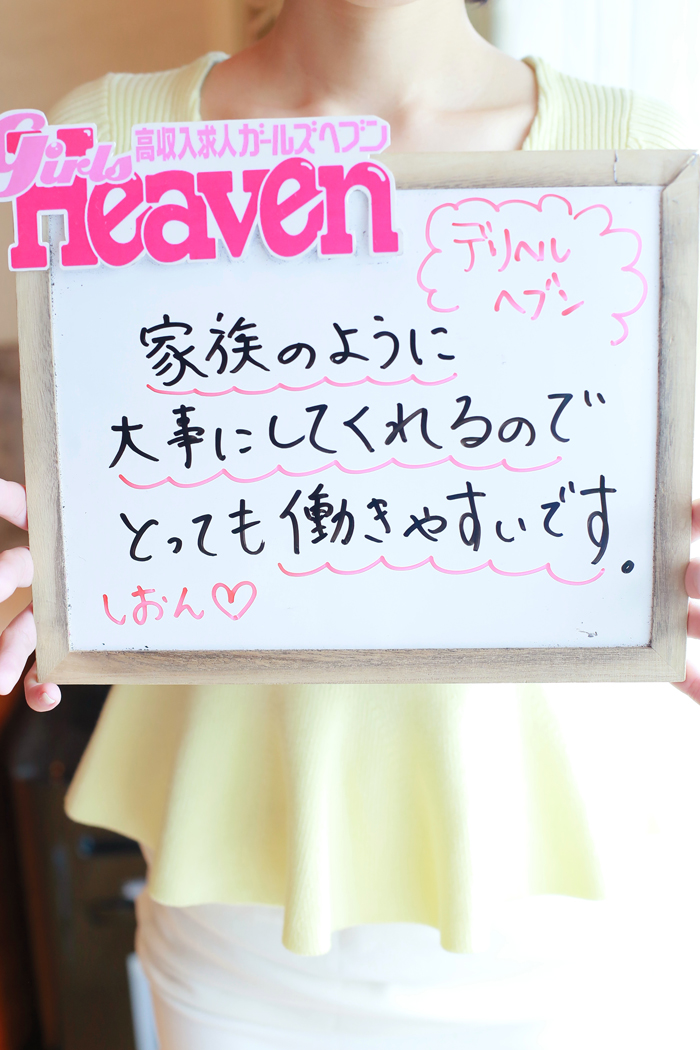 高収入求人ガールズヘブン
Girls
Heaven
デリヘル
ヘブン
家族のように
大事にしてくれるので
とっても働きやすいです。
しおん♡